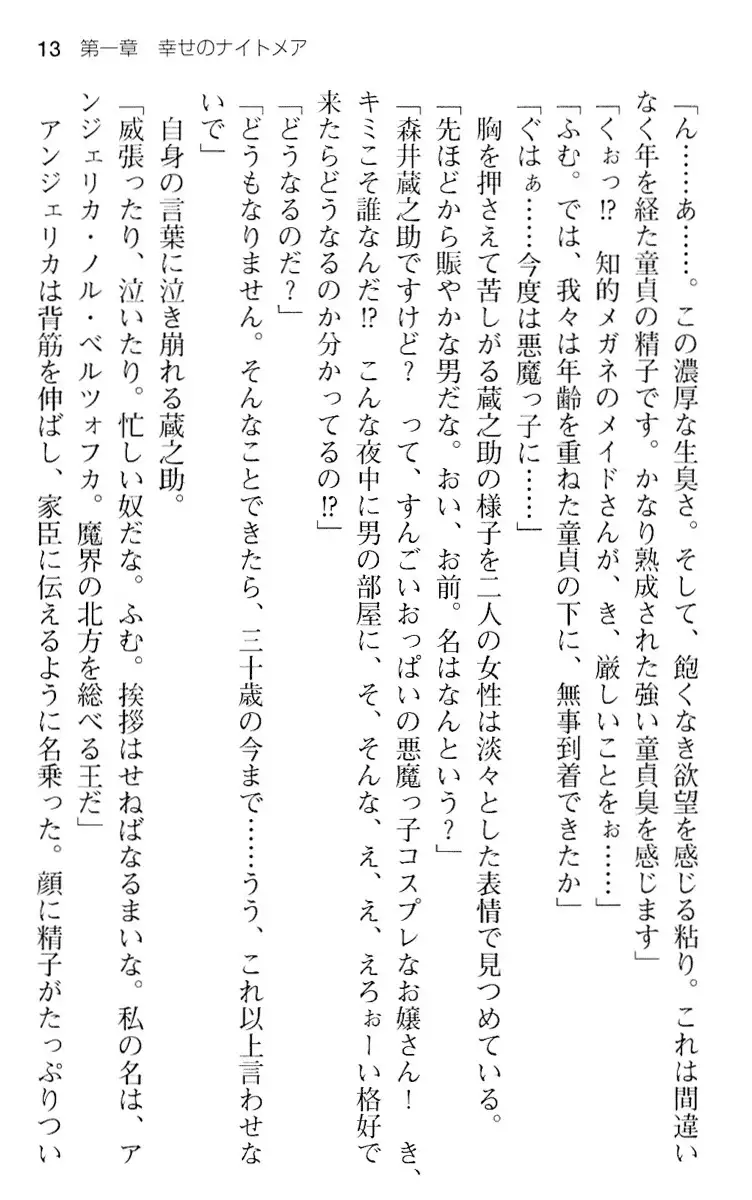 13　第一章　幸せのナイトメア
「ん……あ……。この濃厚な生臭さ。そして、飽くなき欲望を感じる粘り。これは間違い
なく年を経た童貞の精子です。かなり熟成された強い童貞臭を感じます」
「くぉっ!?　知的メガネのメイドさんが、き、厳しいことをぉ……」
「ふむ。では、我々は年齢を重ねた童貞の下に、無事到着できたか」
「ぐはぁ……今度は悪魔っ子に……」
　胸を押さえて苦しがる蔵之助の様子を二人の女性は淡々とした表情で見つめている。
「先ほどから賑やかな男だな。おい、お前。名はなんという？」
「森井蔵之助ですけど？　って、すんごいおっぱいの悪魔っ子コスプレなお嬢さん！　き、
キミこそ誰なんだ!?　こんな夜中に男の部屋に、そ、そんな、え、え、えろぉーい格好で
来たらどうなるのか分かってるの!?」
「どうなるのだ？」
「どうもなりません。そんなことできたら、三十歳の今まで……うう、これ以上言わせな
いで」
　自身の言葉に泣き崩れる蔵之助。
「威張ったり、泣いたり。忙しい奴だな。ふむ。挨拶はせねばなるまいな。私の名は、ア
ンジェリカ・ノル・ベルツォフカ。魔界の北方を総べる王だ」
　アンジェリカは背筋を伸ばし、家臣に伝えるように名乗った。顔に精子がたっぷりつい